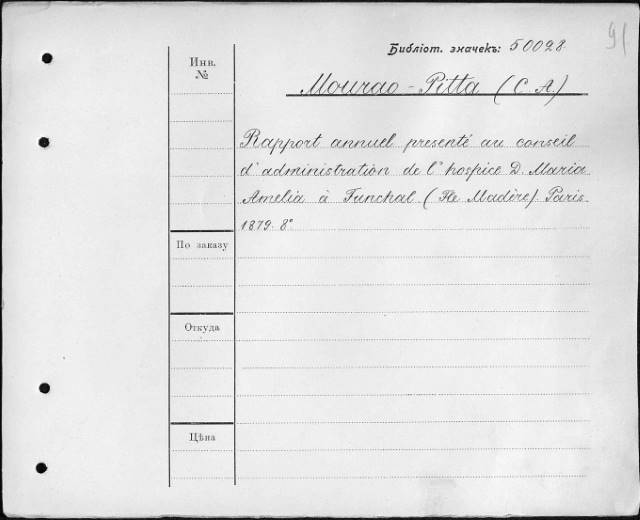 91
Библіот. значекъ: 50028
Инв.
№
Mourao-Pitta (C. A.)
Rapport annuel presenté au conseil
d'administration de l'hospice D. Maria
Amelia à Funchal (Ile Madère). Paris.
1879. 8°
По заказу
Откуда
Цѣна